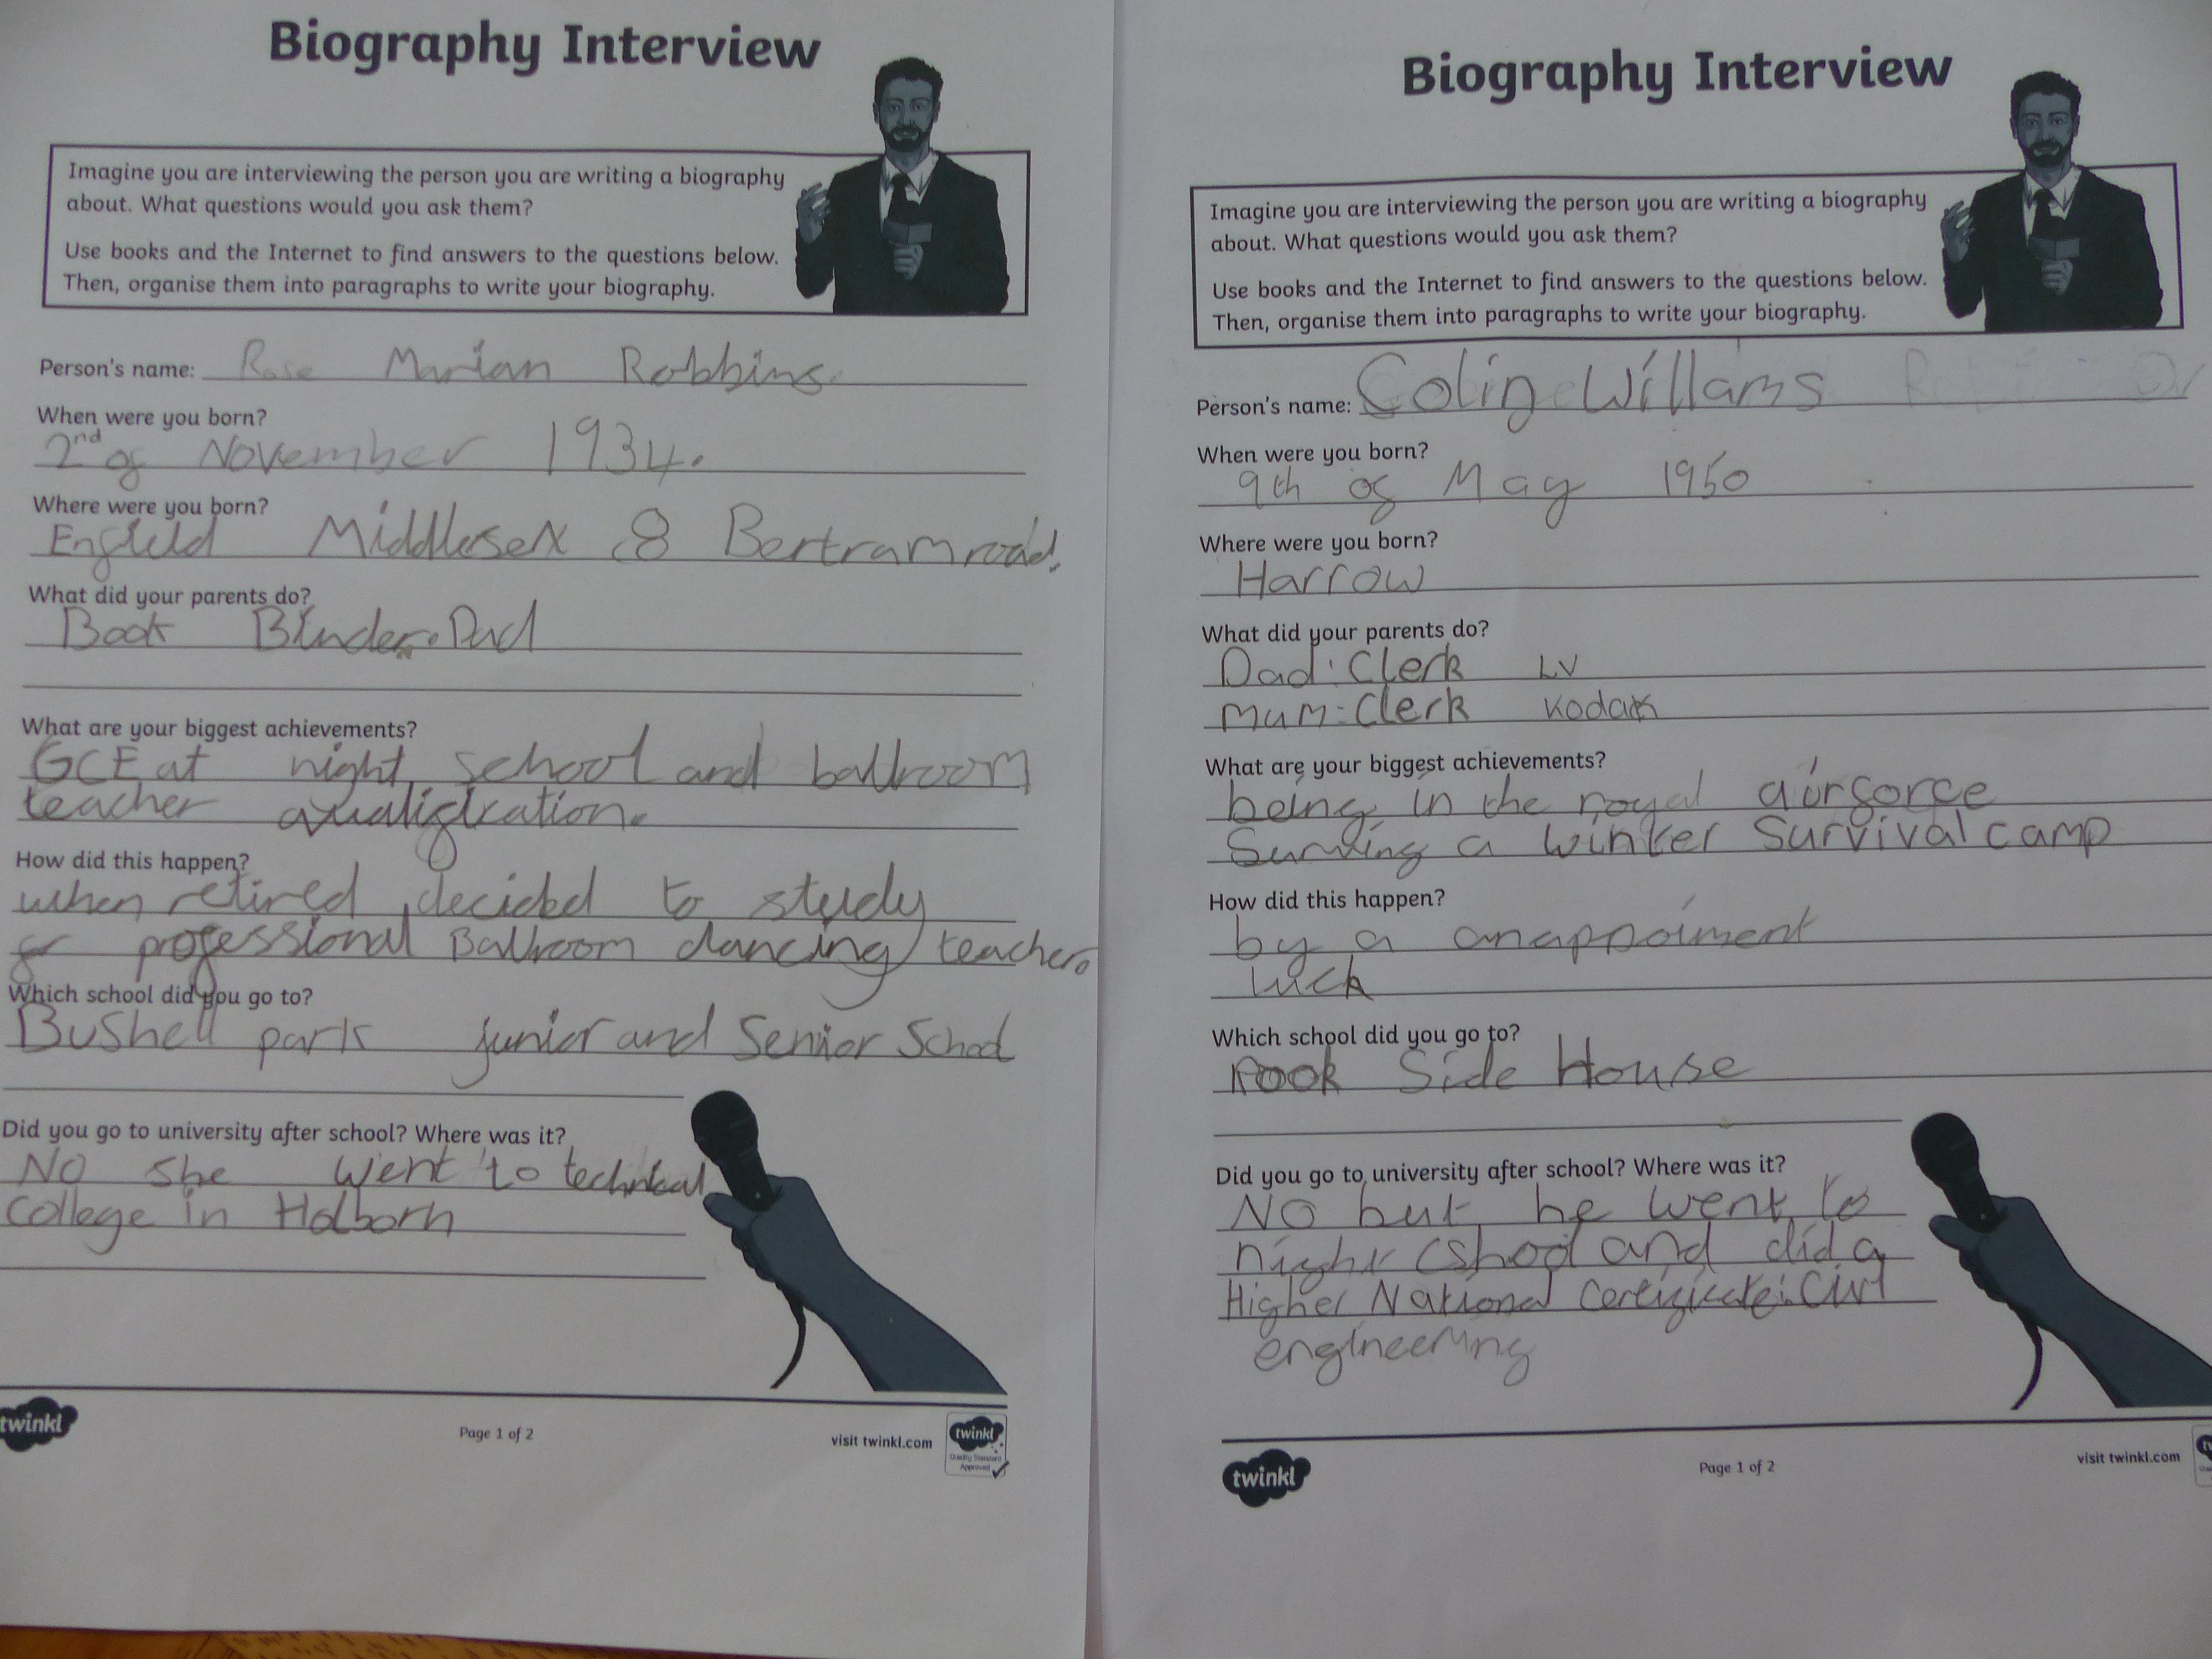 Biography Interview
Imagine you are interviewing the person you are writing a biography
about. What questions would you ask them?
Use books and the Internet to find answers to the questions below.
Then, organise them into paragraphs to write your biography.
Person's name: Rose Marian Robbins.
When were you born?
2nd of November 1934.
Where were you born?
Enfield Middlesex 8 Bertram road.
What did your parents do?
Book Binder. Dad
What are your biggest achievements?
GCE at night school and ballroom
teacher qualification.
How did this happen?
when retired decided to study
for professional Ballroom dancing teacher.
Which school did you go to?
Bushell park junior and Senior School
Did you go to university after school? Where was it?
No she went to technical
college in Holborn
twinkl
Page 1 of 2
visit twinkl.com
twinkl
Quality Standard
Approved
Biography Interview
Imagine you are interviewing the person you are writing a biography
about. What questions would you ask them?
Use books and the Internet to find answers to the questions below.
Then, organise them into paragraphs to write your biography.
Person's name: Colin Willams
When were you born?
9th of May 1950
Where were you born?
Harrow
What did your parents do?
Dad: Clerk LV
mum: Clerk Kodak
What are your biggest achievements?
being in the royal airforce
Surviving a winter Survival camp
How did this happen?
by a anappoiment
luck
Which school did you go to?
rook Side House
Did you go to university after school? Where was it?
No but he went to
night cshool and did a
Higher National Certificate: Civil
engineering
twinkl
Page 1 of 2
visit twinkl.com